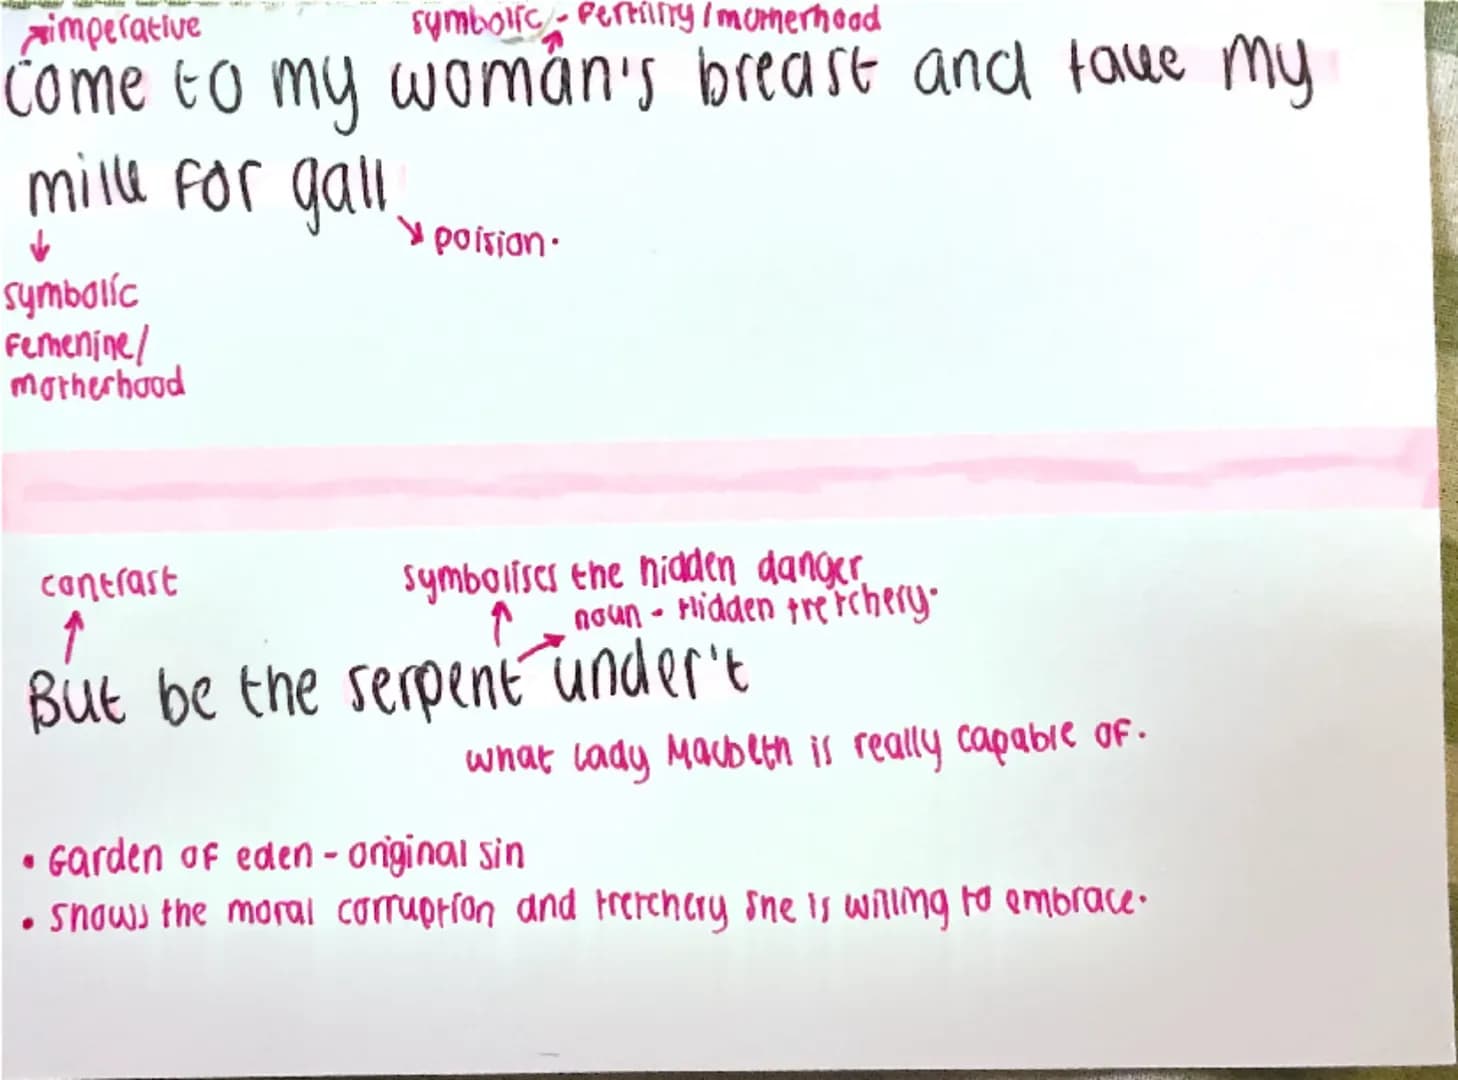 imperative
symbolic - Fertility / motherhood
Come to my woman's breast and take my
milk for gall
poision.
symbolic
Femenine/
motherhood
contrast
symbolises the hidden danger
noun - Hidden tretchery.
But be the serpent under't
what lady Macbeth is really capable of.
• Garden of eden - original sin
• shows the moral corruption and tretchery she is willing to embrace.